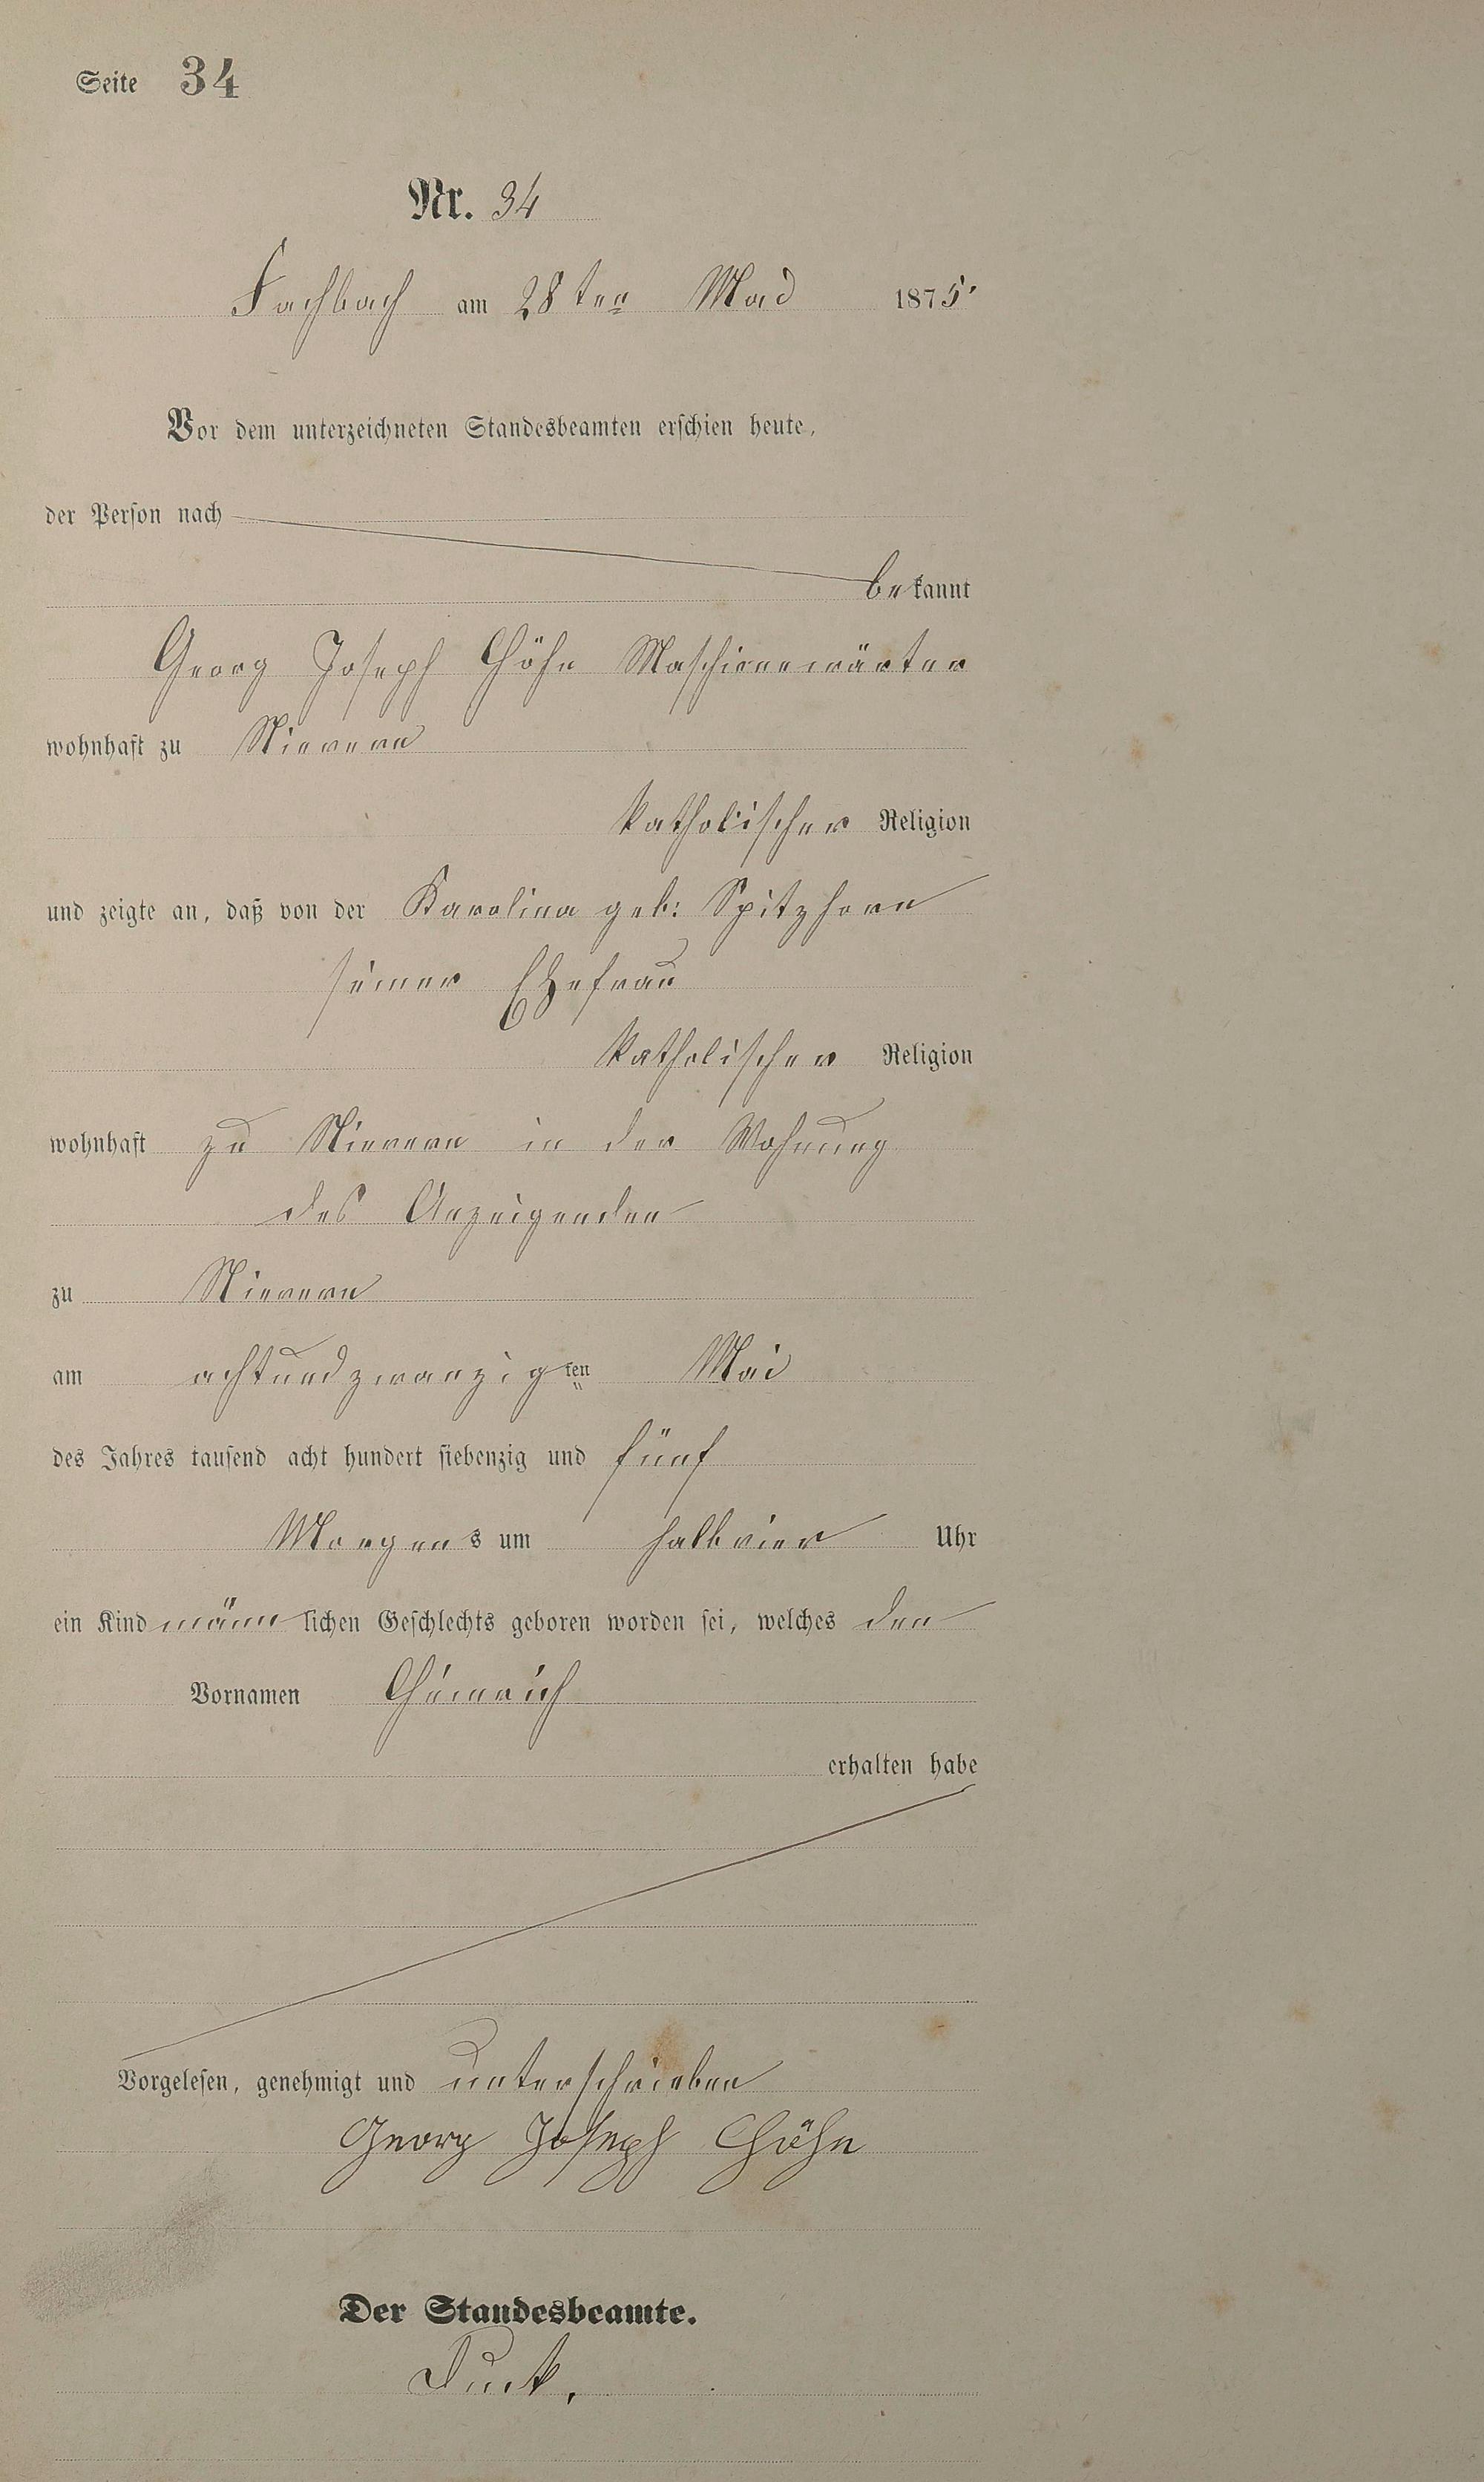 Seite 34
Nr. 34
Fachbach am 28ten Mai 1875
Vor dem unterzeichneten Standesbeamten erschien heute,
der Person nach
bekannt
Georg Joseph Höhn Maschienewärter
wohnhaft zu Nievern
katholischer Religion
und zeigte an, daß von der Karolina geb: Spitzhorn
seiner Ehefrau
katholischer Religion
wohnhaft zu Nievern in der Wohnung
des Anzeigenden
zu Nievern
am achtundzwanzigten Mai
des Jahres tausend acht hundert siebenzig und fünf
Morgens um halb vier Uhr
ein Kind männlichen Geschlechts geboren worden sei, welches den
Vornamen Heinrich
erhalten habe
Vorgelesen, genehmigt und unterschrieben
Georg Joseph Höhn
Der Standesbeamte.